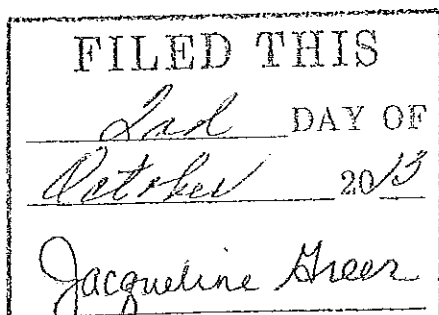 FILED THIS
2nd DAY OF
October 2013
Jacqueline Greer